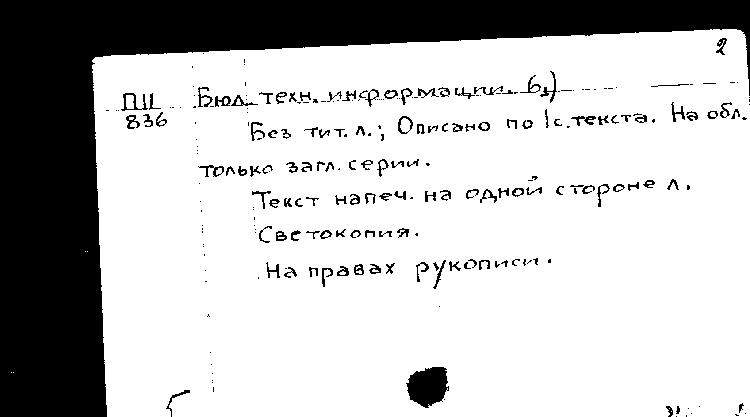 2
П11 Бюл. техн. информации. 61)
836
Без тит. л.; Описано по 1с. текста. На обл.
только загл. серии.
Текст напеч. на одной стороне л.
Светокопия.
На правах рукописи.